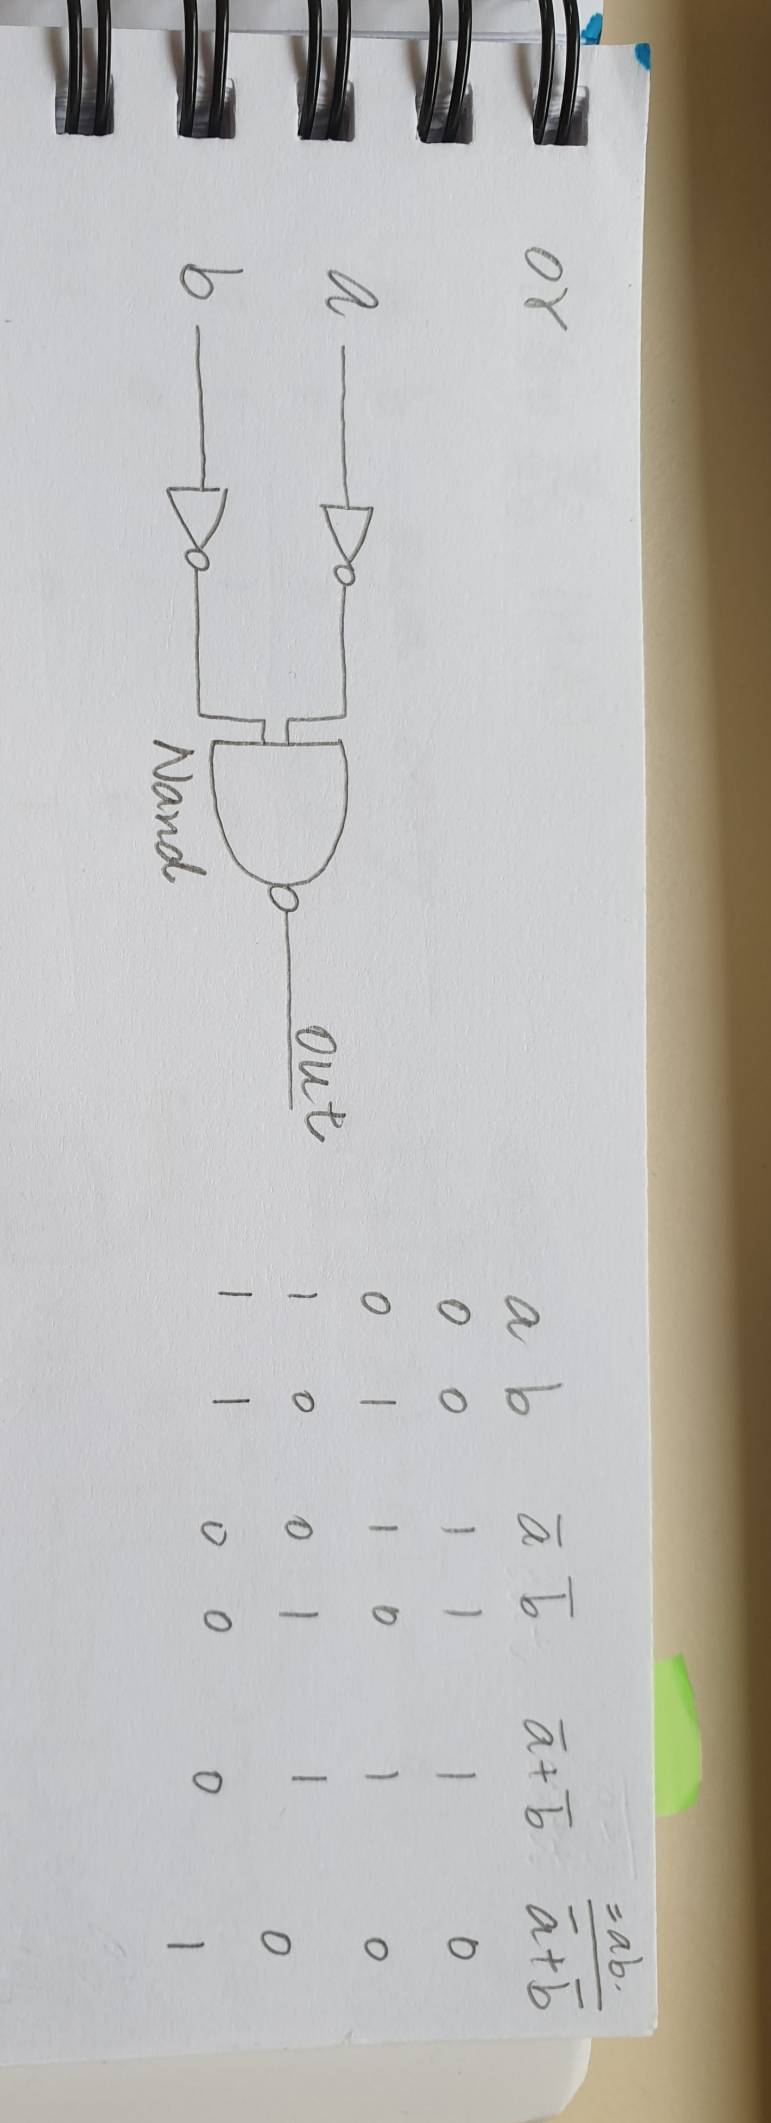 or
a
out
b
Nand
= ab.
a b a̅ b̅ a̅+b̅ \overline{a̅+b̅}
0 0 1 1 1 0
0 1 1 0 1 0
1 0 0 1 1 0
1 1 0 0 0 1